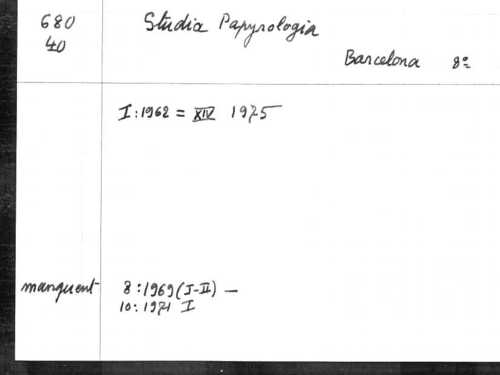 680
40
Studia Papyrologia
Barcelona 8º
I:1962 = XIV 1975
manquent 8:1969 (I-II) —
10:1971 I